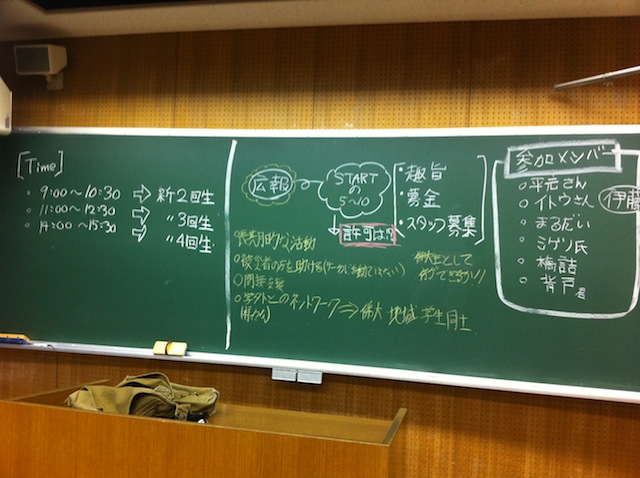 [Time]
○ 9:00〜10:30 ⇒ 新2回生
○ 11:00〜12:30 ⇒ 〃3回生
○ 14:00〜15:30 ⇒ 〃4回生
広報
STARTの
5〜10
・趣旨
・募金
・スタッフ募集
許可は!?
○長期的な活動
○被災者の方を助ける
○間接支援
○学外とのネットワーク⇒ 大 地域 学生同士
として
何ができるか?
参加メンバー
○平元さん
○イトウさん 伊藤
○まるだい
○ミゲリ氏
○橋詰
○背戸君